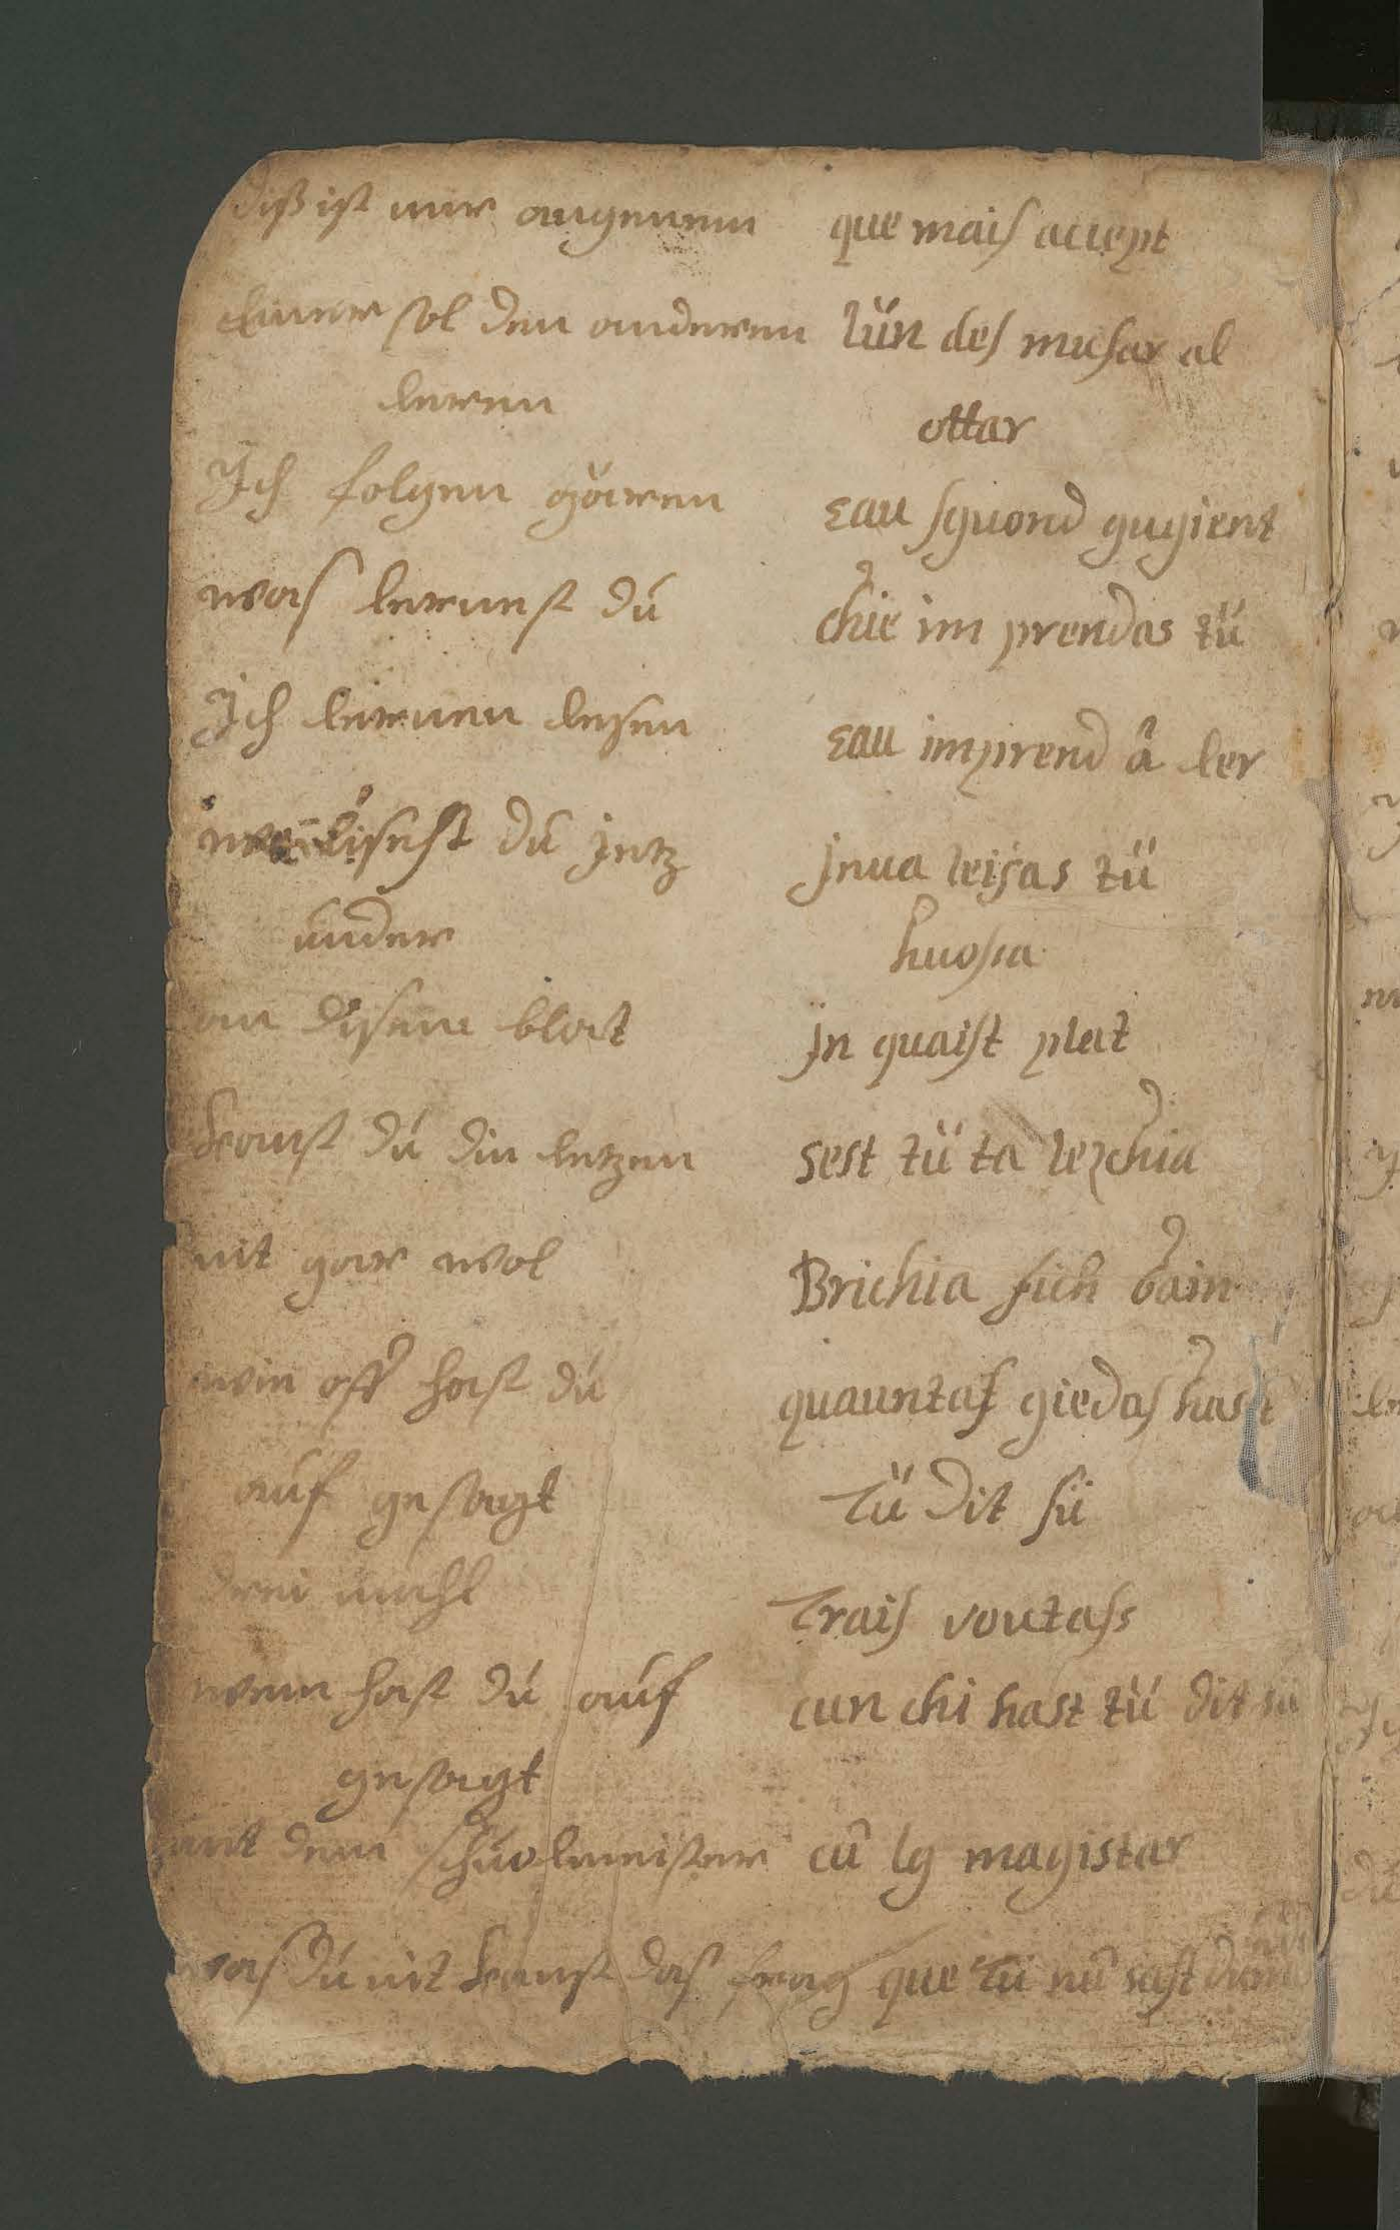 diß ist mir angenem que mais accept
Einer sol den anderen lün des musar al
leren ottar
Ich folgen gären eau sguond gugient
was lernest dú chie im prendas tü
Ich lernen lesen eau imprend â ler
lisest dú jetz jnua leisas tü
ander huossa
an disem blat jn quaist plat
kanst dú din letzen sest tü ta lezchia
nit gar wol Brichia fich bain
wie oft hast dú quauntas giedas hast
auf gesagt tü dit sü
drei mahl Trais voutass
wem hast dú auf cun chi hast tü dit sü
gesagt
mit dem schuolmeister cũ lg magistar
was dú nit kanst das frag que tü nũ sast